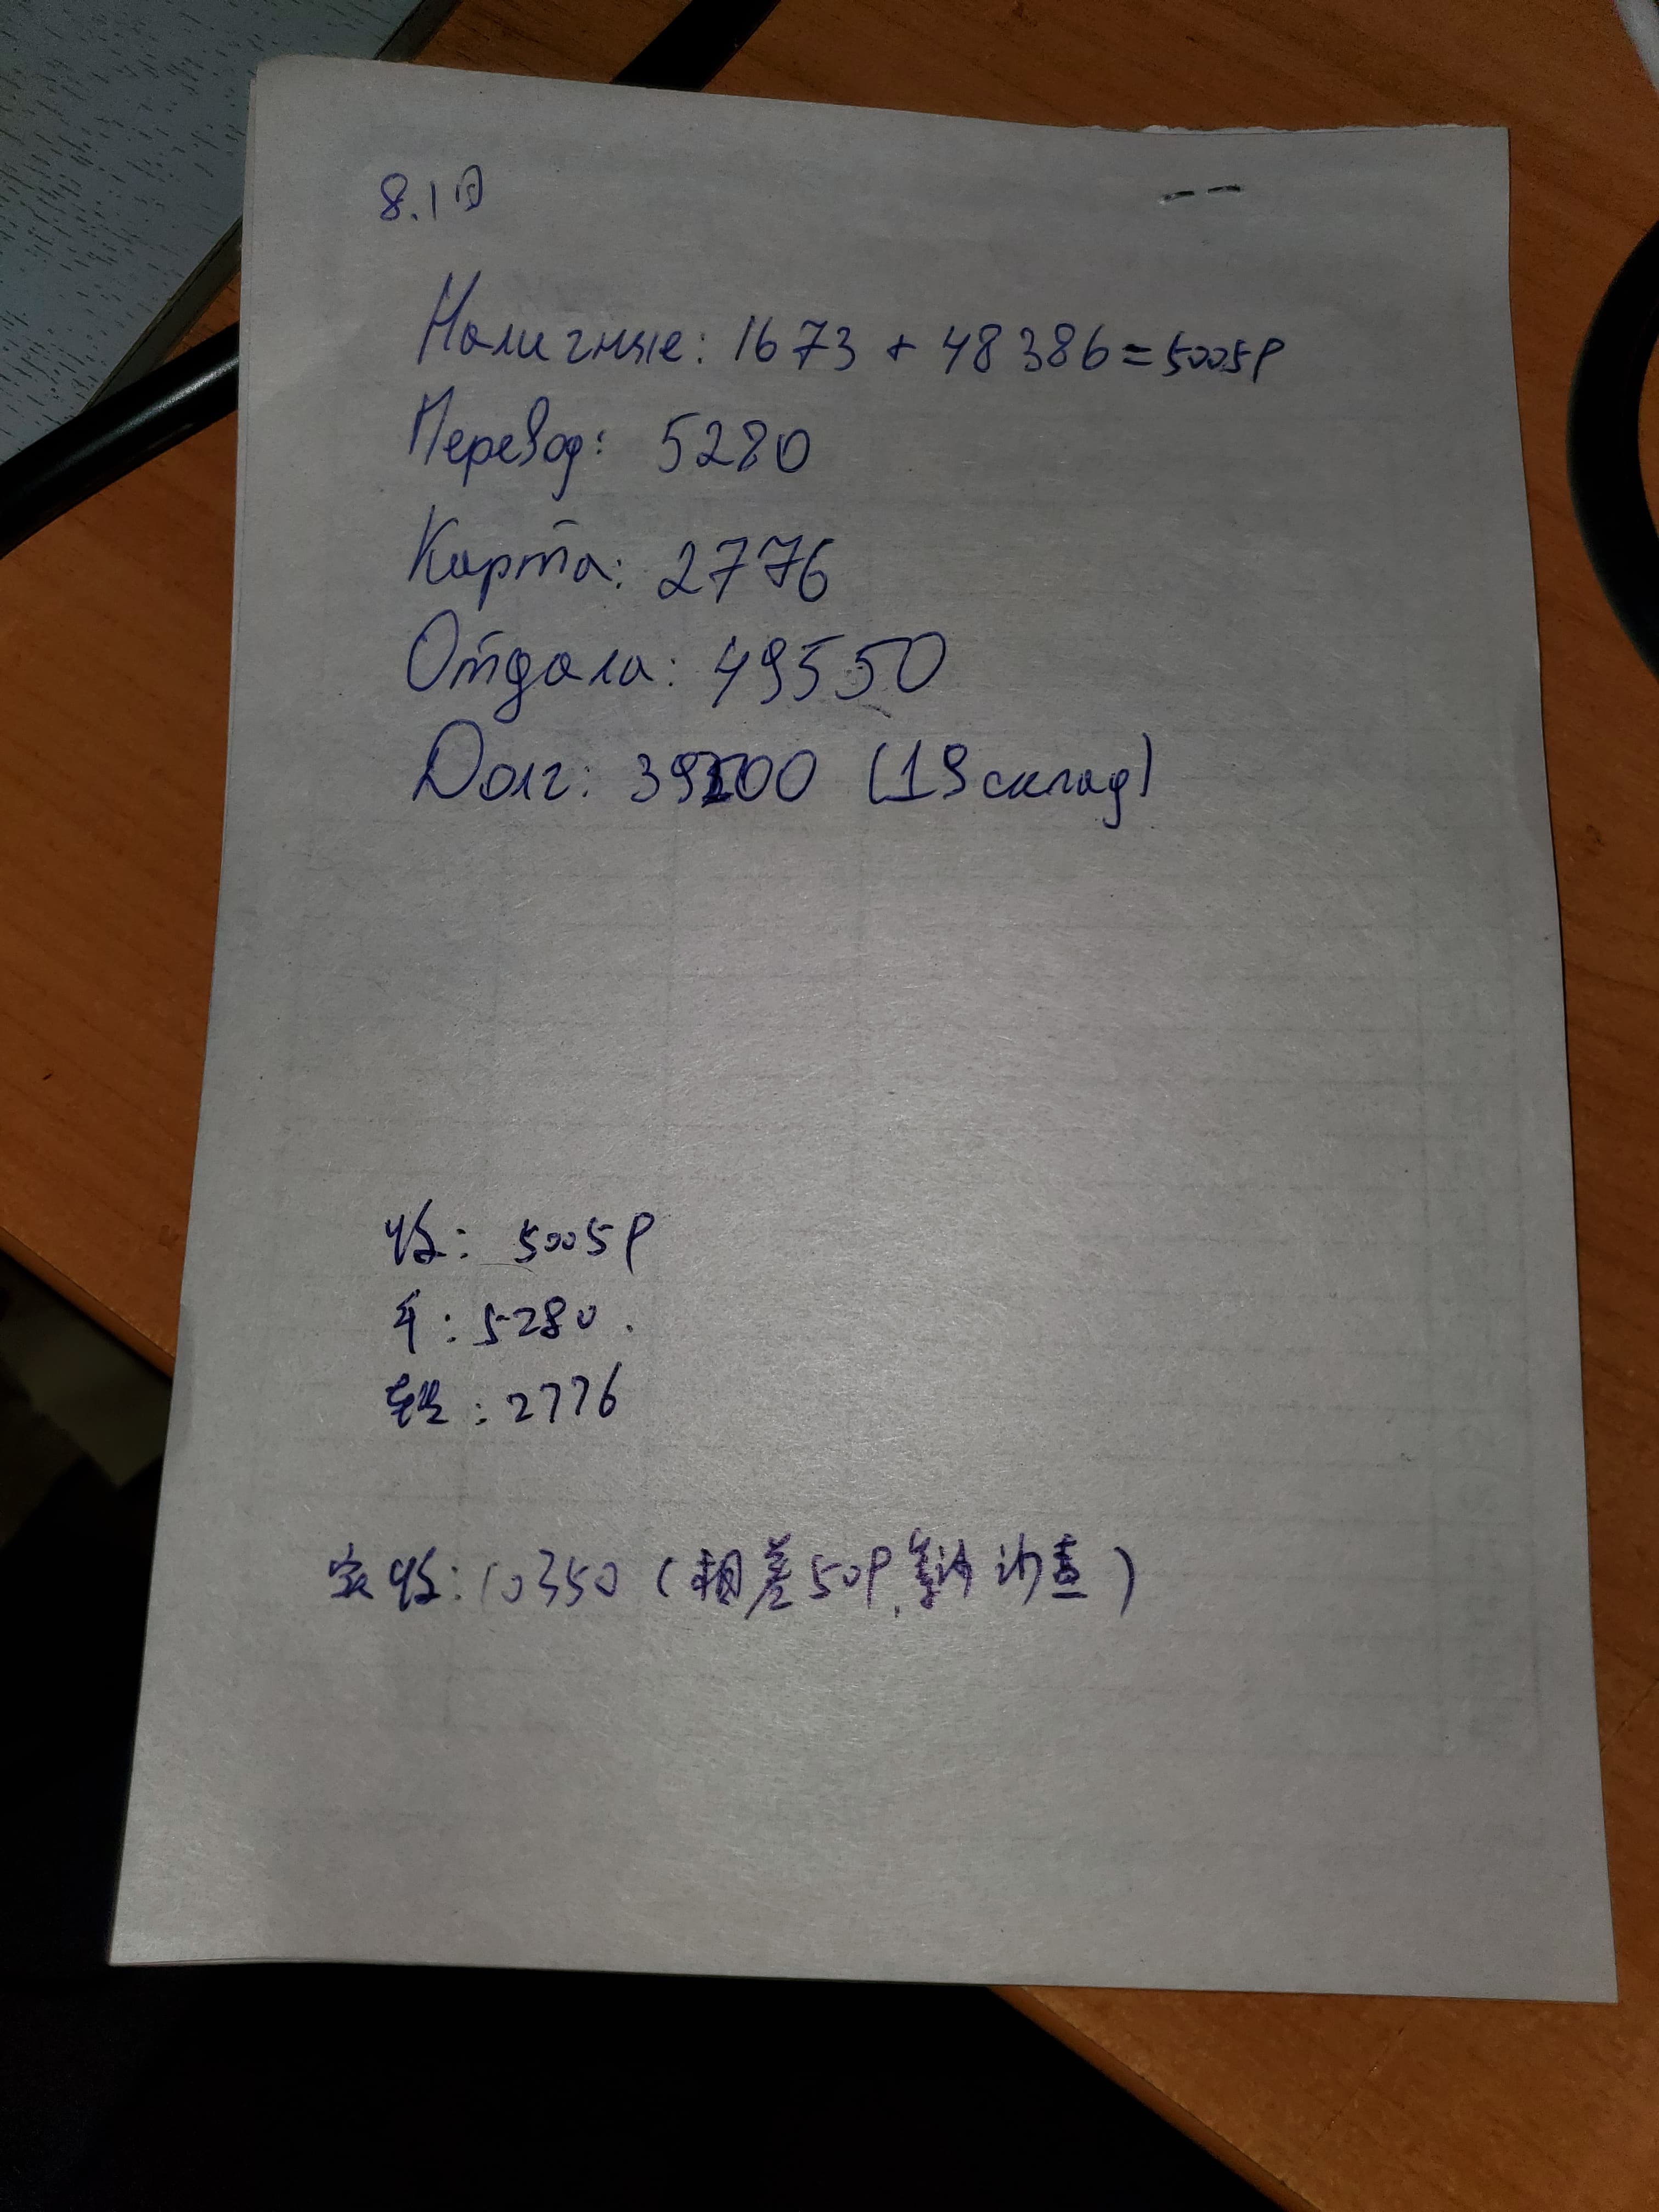 8.1日
Наличные: 1673 + 48386 = 50059
Перевод: 5280
Карта: 2776
Отдала: 49550
Долг: (19 склад)
收: 50059
卡: 5280.
: 2776
实收: 10350 (相差509, 查)